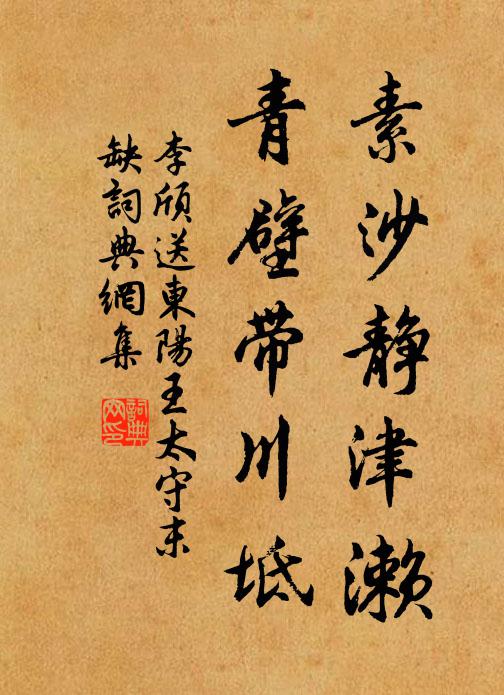 素沙静津濑
青壁带川坻
李颀送東陽王太守末
缺詞典網集
詞典网印